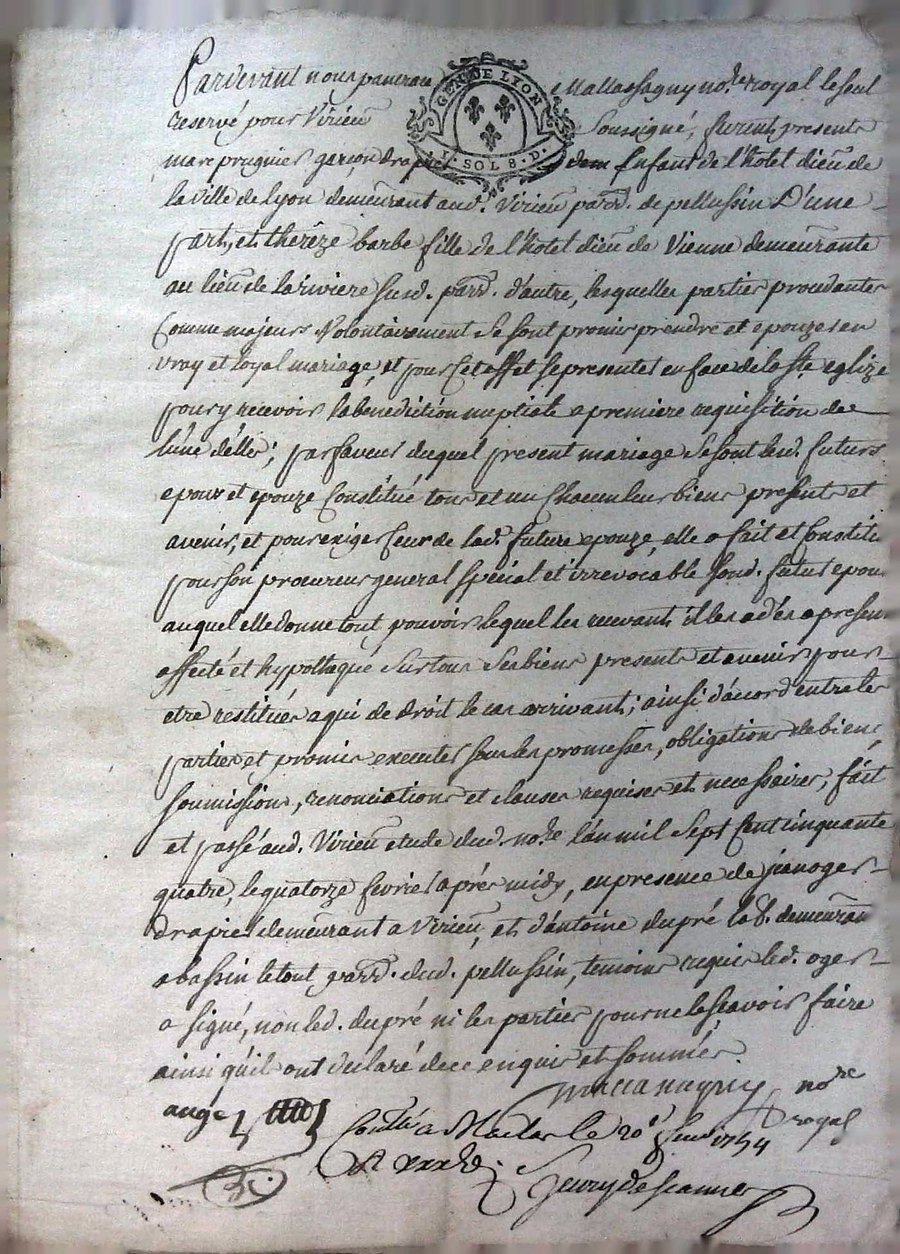 Pardevant nous pancrau Mallassagny no.re royal le seul
GEN. DE LYON
SOL 8. D.
reservé pour Virieu soussigné, furent presents
marc prugnier garcon drapier enfant de l'hotel dieu de
la ville de Lyon demeurant aud. Virieu parr. de pellussin D'une
part, et thereze barbe fille de l'hotel dieu de Vienne demeurante
au lieu de la riviere susd. parr. d'autre, lesquelles parties procedantes
Comme majeurs Volontairement se sont promis prendre et epouzer en
vray et loyal mariage, et pour cet effet se presenter en face de la ste eglize
pour y recevoir la benediction nuptiale a premiere requisition de
l'une d'elles; par faveur duquel present mariage se sont lesd. futurs
epoux et epouze Constitué tous et un Chacun leurs biens presents et
avenir, et pour exiger ceux de lad. future epouze, elle a fait et constitu
pour son procureur general special et irrevocable sond. futur epou
auquel elle donne tout pouvoir lequel les recevant il les a dès a present
affecté et hypottaqué sur tous ses biens presents et avenir pour
etre restitués a qui de droit le cas arrivant; ainsi d'accord entre les
parties et promis executer sous les promesses, obligations de biens
soumissions, renonciations et clauses requises et necessaires; fait
et passé aud. Virieu etude dud. no.re l'an mil sept cent cinquante
quatre, le quatorze fevrier après midy, en presence de jean oger
drapier demeurant a Virieu, et d'antoine dupré lab. demeuran
a bassin le tout parr. dud. pellussin, temoins requis led. oger
a signé, non led. dupré ni les parties pour ne le scavoir faire
ainsi qu'ils ont declaré de ce enquis et sommés.
Mallassagny no.re
royal
auge
Con.lé a Maclas le 20e fevrier 1754